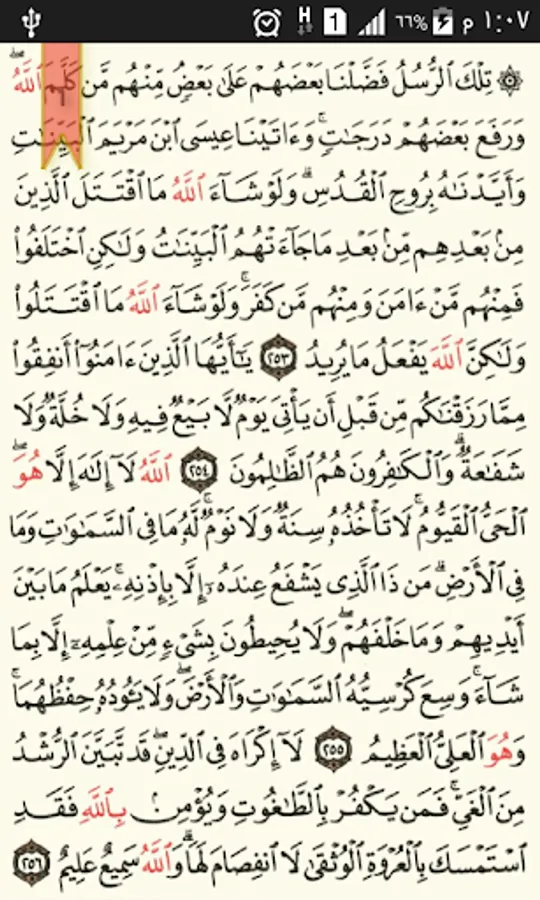 ١:٠٧ م ٦٦% 1 H
۞ تِلْكَ ٱلرُّسُلُ فَضَّلْنَا بَعْضَهُمْ عَلَىٰ بَعْضٍ ۘ مِّنْهُم مَّن كَلَّمَ ٱللَّهُ ۖ
وَرَفَعَ بَعْضَهُمْ دَرَجَٰتٍ ۚ وَءَاتَيْنَا عِيسَى ٱبْنَ مَرْيَمَ ٱلْبَيِّنَٰتِ
وَأَيَّدْنَٰهُ بِرُوحِ ٱلْقُدُسِ ۗ وَلَوْ شَآءَ ٱللَّهُ مَا ٱقْتَتَلَ ٱلَّذِينَ
مِنۢ بَعْدِهِم مِّنۢ بَعْدِ مَا جَآءَتْهُمُ ٱلْبَيِّنَٰتُ وَلَٰكِنِ ٱخْتَلَفُوا۟
فَمِنْهُم مَّنْ ءَامَنَ وَمِنْهُم مَّن كَفَرَ ۚ وَلَوْ شَآءَ ٱللَّهُ مَا ٱقْتَتَلُوا۟
وَلَٰكِنَّ ٱللَّهَ يَفْعَلُ مَا يُرِيدُ ٢٥٣ يَٰٓأَيُّهَا ٱلَّذِينَ ءَامَنُوٓا۟ أَنفِقُوا۟
مِمَّا رَزَقْنَٰكُم مِّن قَبْلِ أَن يَأْتِىَ يَوْمٌ لَّا بَيْعٌ فِيهِ وَلَا خُلَّةٌ وَلَا
شَفَٰعَةٌ ۗ وَٱلْكَٰفِرُونَ هُمُ ٱلظَّٰلِمُونَ ٢٥٤ ٱللَّهُ لَآ إِلَٰهَ إِلَّا هُوَ ۖ
ٱلْحَىُّ ٱلْقَيُّومُ ۚ لَا تَأْخُذُهُۥ سِنَةٌ وَلَا نَوْمٌ ۚ لَّهُۥ مَا فِى ٱلسَّمَٰوَٰتِ وَمَا
فِى ٱلْأَرْضِ ۗ مَن ذَا ٱلَّذِى يَشْفَعُ عِندَهُۥٓ إِلَّا بِإِذْنِهِۦ ۚ يَعْلَمُ مَا بَيْنَ
أَيْدِيهِمْ وَمَا خَلْفَهُمْ ۖ وَلَا يُحِيطُونَ بِشَىْءٍ مِّنْ عِلْمِهِۦٓ إِلَّا بِمَا
شَآءَ ۚ وَسِعَ كُرْسِيُّهُ ٱلسَّمَٰوَٰتِ وَٱلْأَرْضَ ۖ وَلَا يَـُٔودُهُۥ حِفْظُهُمَا ۚ
وَهُوَ ٱلْعَلِىُّ ٱلْعَظِيمُ ٢٥٥ لَآ إِكْرَاهَ فِى ٱلدِّينِ ۖ قَد تَّبَيَّنَ ٱلرُّشْدُ
مِنَ ٱلْغَىِّ ۚ فَمَن يَكْفُرْ بِٱلطَّٰغُوتِ وَيُؤْمِنۢ بِٱللَّهِ فَقَدِ
ٱسْتَمْسَكَ بِٱلْعُرْوَةِ ٱلْوُثْقَىٰ لَا ٱنفِصَامَ لَهَا ۗ وَٱللَّهُ سَمِيعٌ عَلِيمٌ ٢٥٦